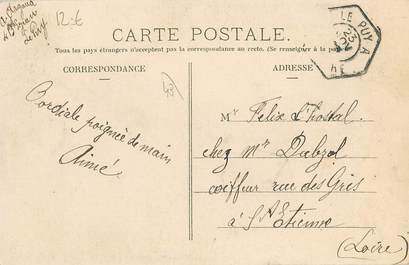 12.€
CARTE POSTALE.
Tous les pays étrangers n'acceptent pas la correspondance au recto. (Se renseigner à la poste)
CORRESPONDANCE
ADRESSE
LE PUY A
43
Cordiale poignée de main
Aimé
Mr Felix L'hostal
chez Mr Dubzol
coiffeur rue des Gris
à St Etienne
(Loire)